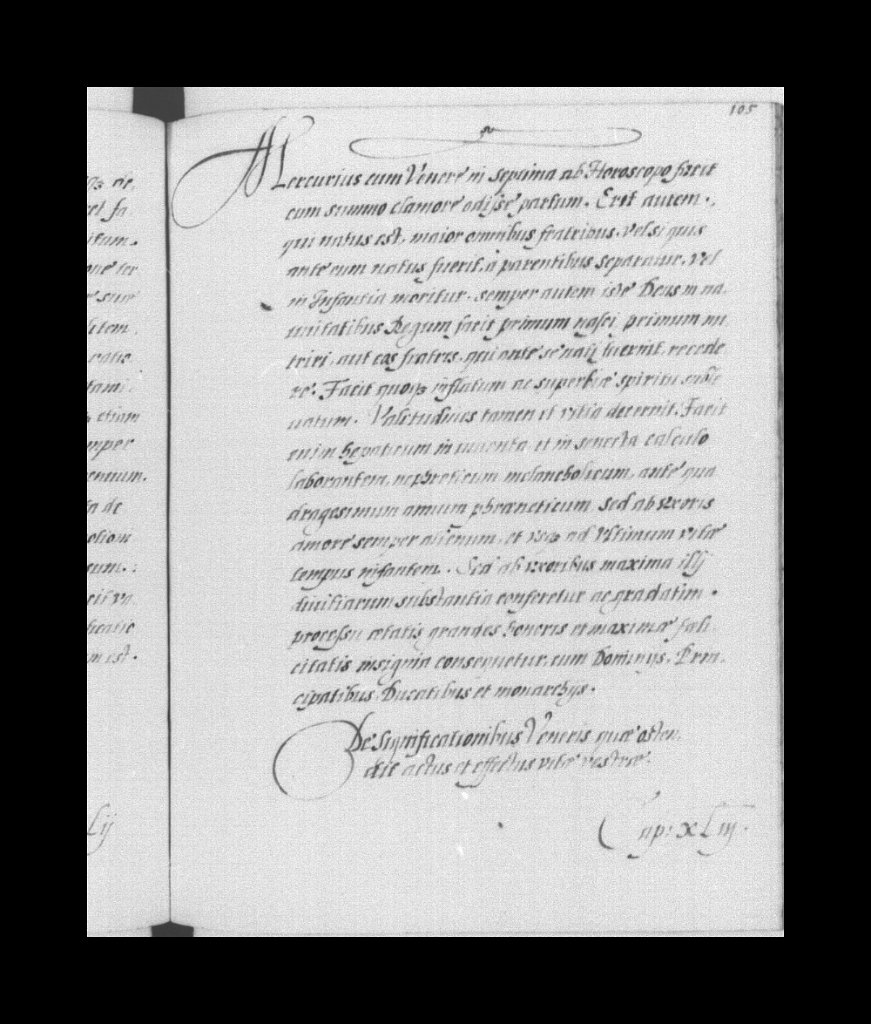 105
Mercurius cum Venere in septima ab Horoscopo facit
cum summo clamore odisse partum. Erit autem.,
qui natus est, maior omnibus fratribus, vel si quis
ante eum natus fuerit, a parentibus separatur, vel
in Infantia moritur. semper autem iste Deus in na
tivitatibus Regum facit primum nasci primum nu
triri, aut eos fratres, qui ante se nati fuerint, recede
re. Facit quoqз inflatum ac superbie spiritu suble
vatum. Valetudines tamen et vitia decernit. Facit
enim hepaticum in iuventa et in senecta calculo
laborantem, nephreticum melancholicum, ante qua
dragesimum annum phreneticum sed ab uxoris
amore semper alienum, et usqз ad ultimum vitæ
tempus infantem. Sed ab uxoribus maxima illi
divitiarum substantia conferetur ac gradatim.
processu ætatis grandes honoris et maximæ fæli
citatis insignia consequetur, cum Dominijs, Prin
cipatibus Ducatibus et monarchijs.
De Significationibus Veneris quæ osten
dit actus et effectus vitæ vestræ.
Cap: xLiij.
qз de,
vel fa
itum.
ter
litem
ratio
etiam
emper
ennium.
de
sum.
m est.
Lij